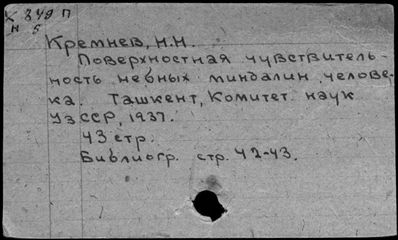 Х 849 П
Н 5
Кремнев, Н.Н.
Поверхностная чувствитель-
ность небных миндалин челове-
ка. Ташкент, Комитет наук
УзССР, 1937.
43 стр.
Библиогр. стр. 42-43.